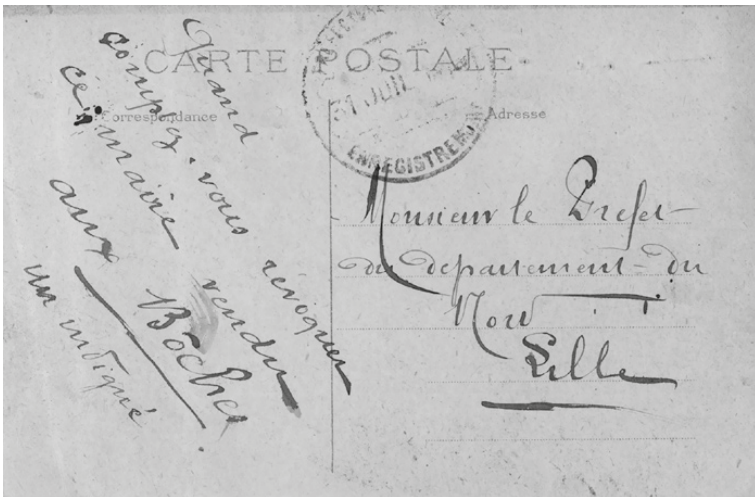 CARTE POSTALE
Correspondance
Adresse
31 JUIL
ENREGISTREMENT
Quand
comptez-vous révoquer
ce maire vendu
aux Boches.
un indigné
Monsieur le Prefet
du departement du
Nord
Lille